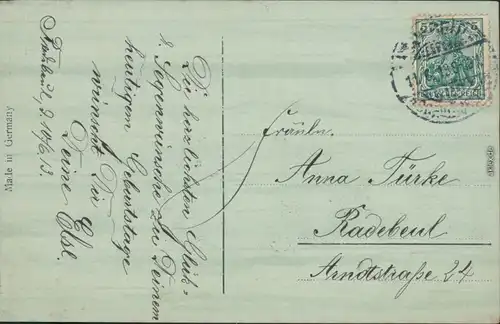 Radebeul, d. 10/6.13.
Die herzlichsten Glück-
u. Segenswünsche zu Deinem
heutigen Geburtstage
wünscht Dir
Deine Else.
Made in Germany
Fräulein
Anna Türke
Radebeul
Arndtstraße 24
5 5
DEUTSCHES REICH